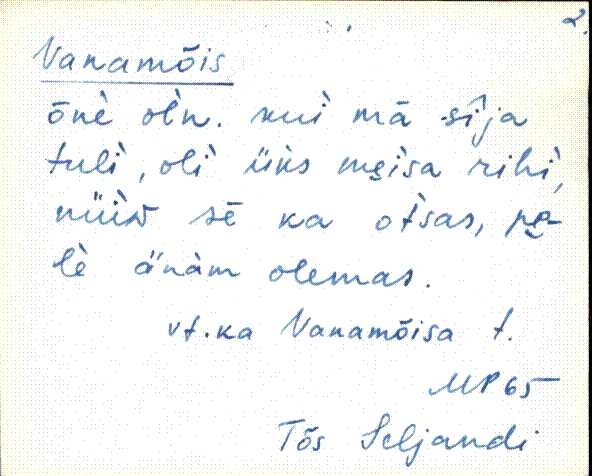 2.
Vanamõis
õnè òln. kui mā sîja
tulì, olì üks mẹìsa rihì,
nüìd sē ka òtsas, pẹ-
lè änàm olemas.
vt. ka Vanamõisa t.
MP 65
Tõs Seljandi